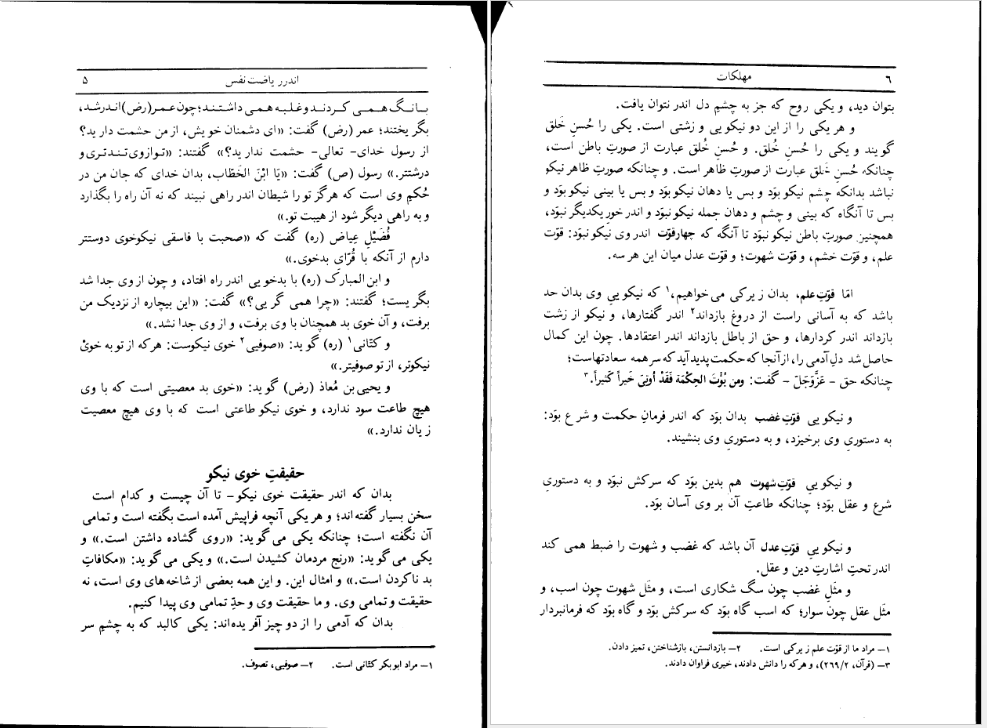 اندر ریاضت نفس ۵
بانگ همی کردند و غلبه همی داشتند؛ چون عمر (رض) اندر شد،
بگریختند؛ عمر (رض) گفت: «ای دشمنان خویش، از من حشمت دارید؟
از رسول خدای- تعالی- حشمت ندارید؟» گفتند: «تو از وی تندتری و
درشتتر.» رسول (ص) گفت: «یَا ابْنَ الخَطّاب، بدان خدای که جان من در
حُکمِ وی است که هرگز تو را شیطان اندر راهی نبیند که نه آن راه را بگذارد
و به راهی دیگر شود از هیبت تو.»
فُضَیْلِ عِیاض (ره) گفت که «صحبت با فاسقی نیکوخوی دوستتر
دارم از آنکه با قُرّای بدخوی.»
و ابن المبارَک (ره) با بدخویی اندر راه افتاد، و چون از وی جدا شد
بگریست؛ گفتند: «چرا همی گریی؟» گفت: «این بیچاره از نزدیک من
برفت، و آن خوی بد همچنان با وی برفت، و از وی جدا نشد.»
و کتّانی۱ (ره) گوید: «صوفیی۲ خوی نیکوست: هر که از تو به خویْ
نیکوتر، از تو صوفیتر.»
و یحیی بن مُعاذ (رض) گوید: «خوی بد معصیتی است که با وی
هیچ طاعت سود ندارد، و خوی نیکو طاعتی است که با وی هیچ معصیت
زیان ندارد.»
حقیقتِ خوی نیکو
بدان که اندر حقیقت خوی نیکو- تا آن چیست و کدام است
سخن بسیار گفته اند؛ و هر یکی آنچه فراپیش آمده است بگفته است و تمامی
آن نگفته است؛ چنانکه یکی می گوید: «روی گشاده داشتن است.» و
یکی می گوید: «رنج مردمان کشیدن است.» و یکی می گوید: «مکافاتِ
بد ناکردن است.» و امثال این. و این همه بعضی از شاخه های وی است، نه
حقیقت و تمامی وی. و ما حقیقت وی و حدِّ تمامی وی پیدا کنیم.
بدان که آدمی را از دو چیز آفریده اند: یکی کالبد که به چشمِ سر
۱- مراد ابوبکر کتّانی است. ۲- صوفیی، تصوف.
۶ مهلکات
بتوان دید، و یکی روح که جز به چشمِ دل اندر نتوان یافت.
و هر یکی را از این دو نیکویی و زشتی است. یکی را حُسنِ خَلق
گویند و یکی را حُسنِ خُلق. و حُسنِ خُلق عبارت از صورتِ باطن است،
چنانکه حُسنِ خَلق عبارت از صورتِ ظاهر است. و چنانکه صورتِ ظاهر نیکو
نباشد بدانکه چشم نیکو بوَد و بس یا دهان نیکو بوَد و بس یا بینی نیکو بوَد و
بس تا آنگاه که بینی و چشم و دهان جمله نیکو نبوَد و اندر خورِ یکدیگر نبوَد،
همچنین صورتِ باطن نیکو نبوَد تا آنگه که چهار قوّت اندر وی نیکو نبوَد: قوّت
علم، و قوّت خشم، و قوّت شهوت؛ و قوّت عدل میان این هر سه.
امّا قوّتِ علم، بدان زیرکی می خواهیم،۱ که نیکویی وی بدان حد
باشد که به آسانی راست از دروغ بازداند۲ اندر گفتارها، و نیکو از زشت
بازداند اندر کردارها، و حق از باطل بازداند اندر اعتقادها. چون این کمال
حاصل شد دلِ آدمی را، از آنجا که حکمت پدید آید که سر همه سعادتهاست؛
چنانکه حق - عَزَّوَجَلّ - گفت: ومن یُؤتَ الحِکمَة فَقَدْ أوتِیَ خَیراً کَثیراً.۳
و نیکویی قوّتِ غضب بدان بوَد که اندر فرمانِ حکمت و شرع بوَد:
به دستوریِ وی برخیزد، و به دستوریِ وی بنشیند.
و نیکوییِ قوّتِ شهوت هم بدین بوَد که سرکش نبوَد و به دستوریِ
شرع و عقل بوَد؛ چنانکه طاعتِ آن بر وی آسان بوَد.
و نیکوییِ قوّتِ عدل آن باشد که غضب و شهوت را ضبط همی کند
اندر تحتِ اشارتِ دین و عقل.
و مثَلِ غضب چون سگ شکاری است، و مثَل شهوت چون اسب، و
مثَل عقل چون سوار؛ که اسب گاه بوَد که سرکش بوَد و گاه بوَد که فرمانبردار
۱- مراد ما از قوّت علم زیرکی است. ۲- بازدانستن، بازشناختن، تمیز دادن.
۳- (قرآن، ۲۶۹/۲)، و هر که را دانش دادند، خیری فراوان دادند.